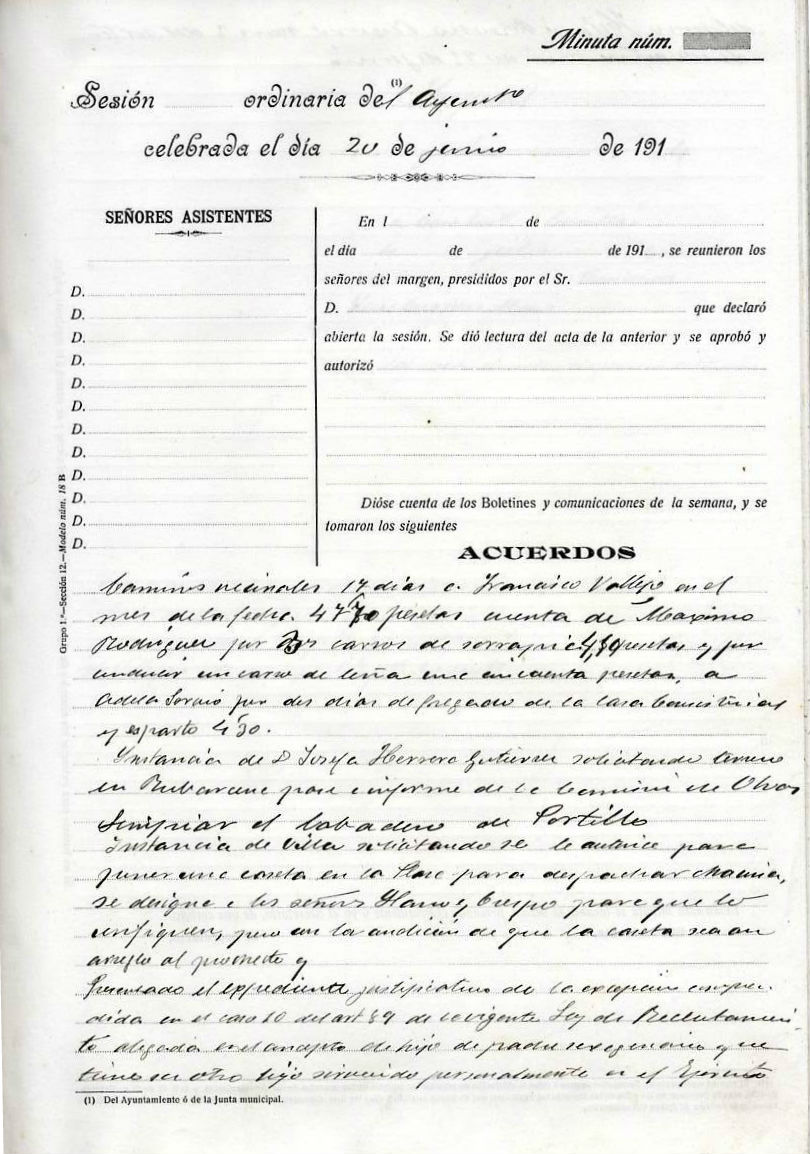 Minuta núm.
Sesión ordinaria del (1) Ayunto
celebrada el día 20 de junio de 191
SEÑORES ASISTENTES
En l de
el día de de 191 , se reunieron los
señores del margen, presididos por el Sr.
D. que declaró
abierta la sesión. Se dió lectura del acta de la anterior y se aprobó y
autorizó
D.
D.
D.
D.
D.
D.
D.
D.
D.
D.
D.
D.
Dióse cuenta de los Boletines y comunicaciones de la semana, y se
tomaron los siguientes
ACUERDOS
Grupo 1.º—Sección 12.—Modelo núm. 18 B
Caminos vecinales 17 días a Francisco Vallejo en el
mes de la fecha pesetas cuenta de Maximo
Rodriguez por carros de pesetas y por
conducir un carro de leña cincuenta pesetas, a
Adela por dos días de fregado de la Casa Consistorial
y esparto 4'30.
Instancia de D Josefa Herrero Gutierrez solicitando terreno
en pase a informe de la Comisión de Obras
Limpiar el labadero de Portillo
Instancia de Villa solicitando se le autorice para
poner una caseta en la Plaza para despachar
se designe a los señores Llano y Crespo para que lo
, pero con la condición de que la caseta sea con
arreglo al proyecto y
Presentado el expediente justificativo de la excepción compren-
dida en el caso 10 del art 89 de la vigente Ley de Reclutamien-
to alegada en el concepto de hijo de padre sexagenario y que
tiene su otro hijo sirviendo personalmente en el Ejército
(1) Del Ayuntamiento ó de la Junta municipal.